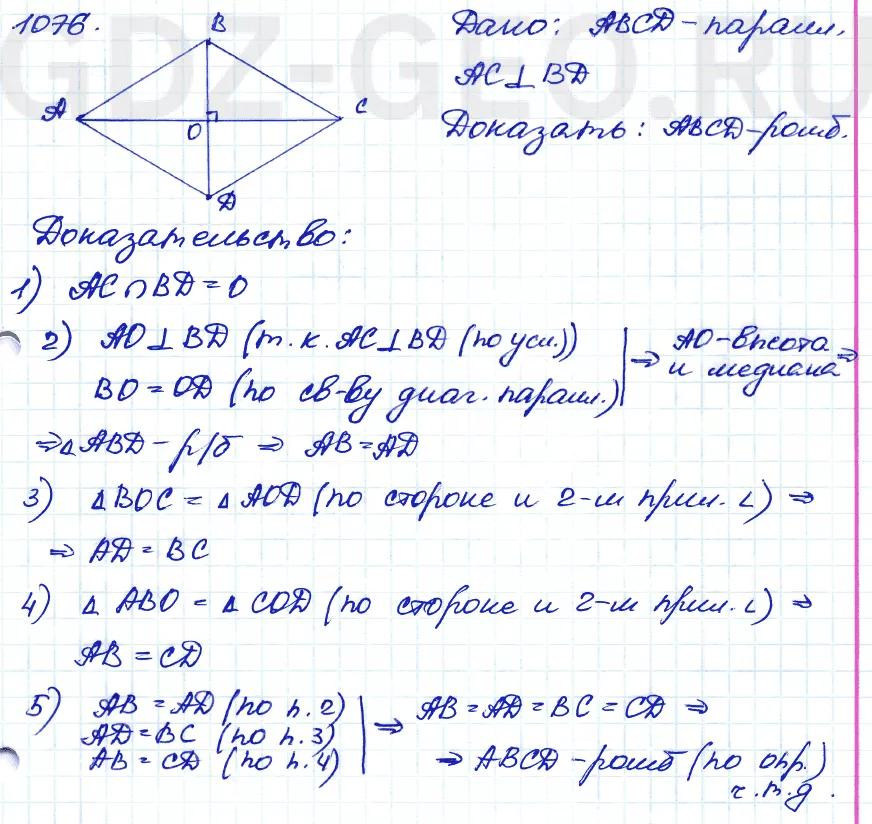 GDZ-GEO.RU
1076.
B
A
C
O
D
Дано: ABCD – паралл,
AC⊥BD
Доказать: ABCD–ромб.
Доказательство:
1) AC∩BD=O
2) AO⊥BD (т.к. AC⊥BD (по усл.)) ⇒ AO–высота
BO=OD (по св-ву диаг. паралл.) и медиана ⇒
⇒ △ABD – р/б ⇒ AB=AD
3) △BOC = △AOD (по стороне и 2-м прил. ∠) ⇒
⇒ AD=BC
4) △ABO = △COD (по стороне и 2-м прил. ∠) ⇒
AB=CD
5) AB=AD (по п.2) ⇒ AB=AD=BC=CD ⇒
AD=BC (по п.3)
AB=CD (по п.4) ⇒ ABCD–ромб (по опр.)
ч.т.д.